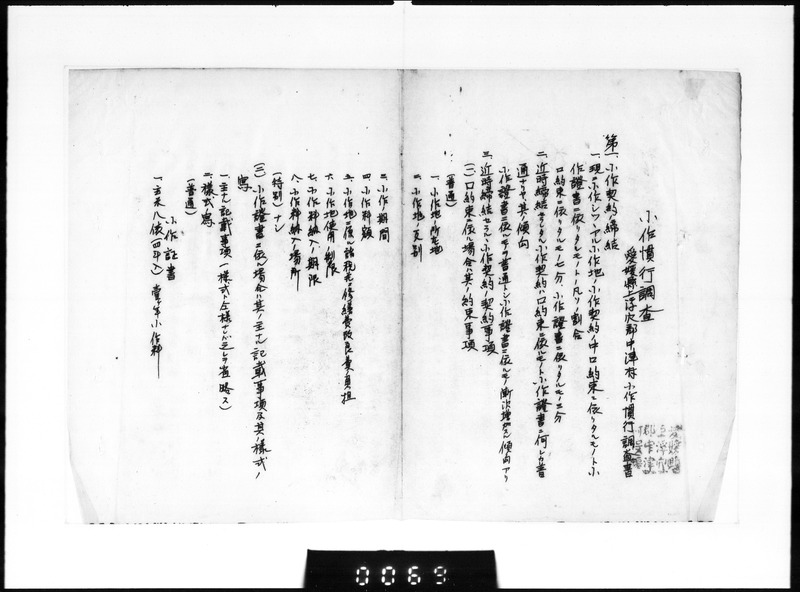 小作慣行調査
愛媛縣上浮穴郡中津村小作慣行調査書
第一、小作契約ノ締結
一、現ニ小作シツヽアル小作地ノ小作契約ノ中口約束ニ依リタルモノト小
作證書ニ依リタルモノトノ凡ソノ割合
口約束ニ依リタルモノ七分、小作證書ニ依リタルモノ三分
二、近時締結セラレタル小作契約ハ口約束ニ依ルモノト小作證書ニ何レカ普
通ナリヤ其ノ傾向
小作證書ニ依ルモノ普通トシ小作證書ニ依ルモノ漸次増加スル傾向アリ
三、近時締結セラルヽ小作契約ノ契約事項
(一)口約束ニ依ル場合ハ其ノ約束事項
(普通)
一、小作地ノ所在地
二、小作地ノ反別
三、小作期間
四、小作料額
五、小作地ニ係ル諸税克修繕費改良費ノ負担
六、小作地使用ノ制限
七、小作料納入ノ期限
八、小作料納入ノ場所
(特別)ナシ
(二)小作證書ニ依ル場合ハ其ノ主ナル記載事項及其ノ様式ノ
寫
一、主ナル記載事項(様式ト仝様ナレバ之レヲ省略ス)
二、様式寫
(普通)
小作証書
一、玄米八俵(四斗入) 當年小作料
0069